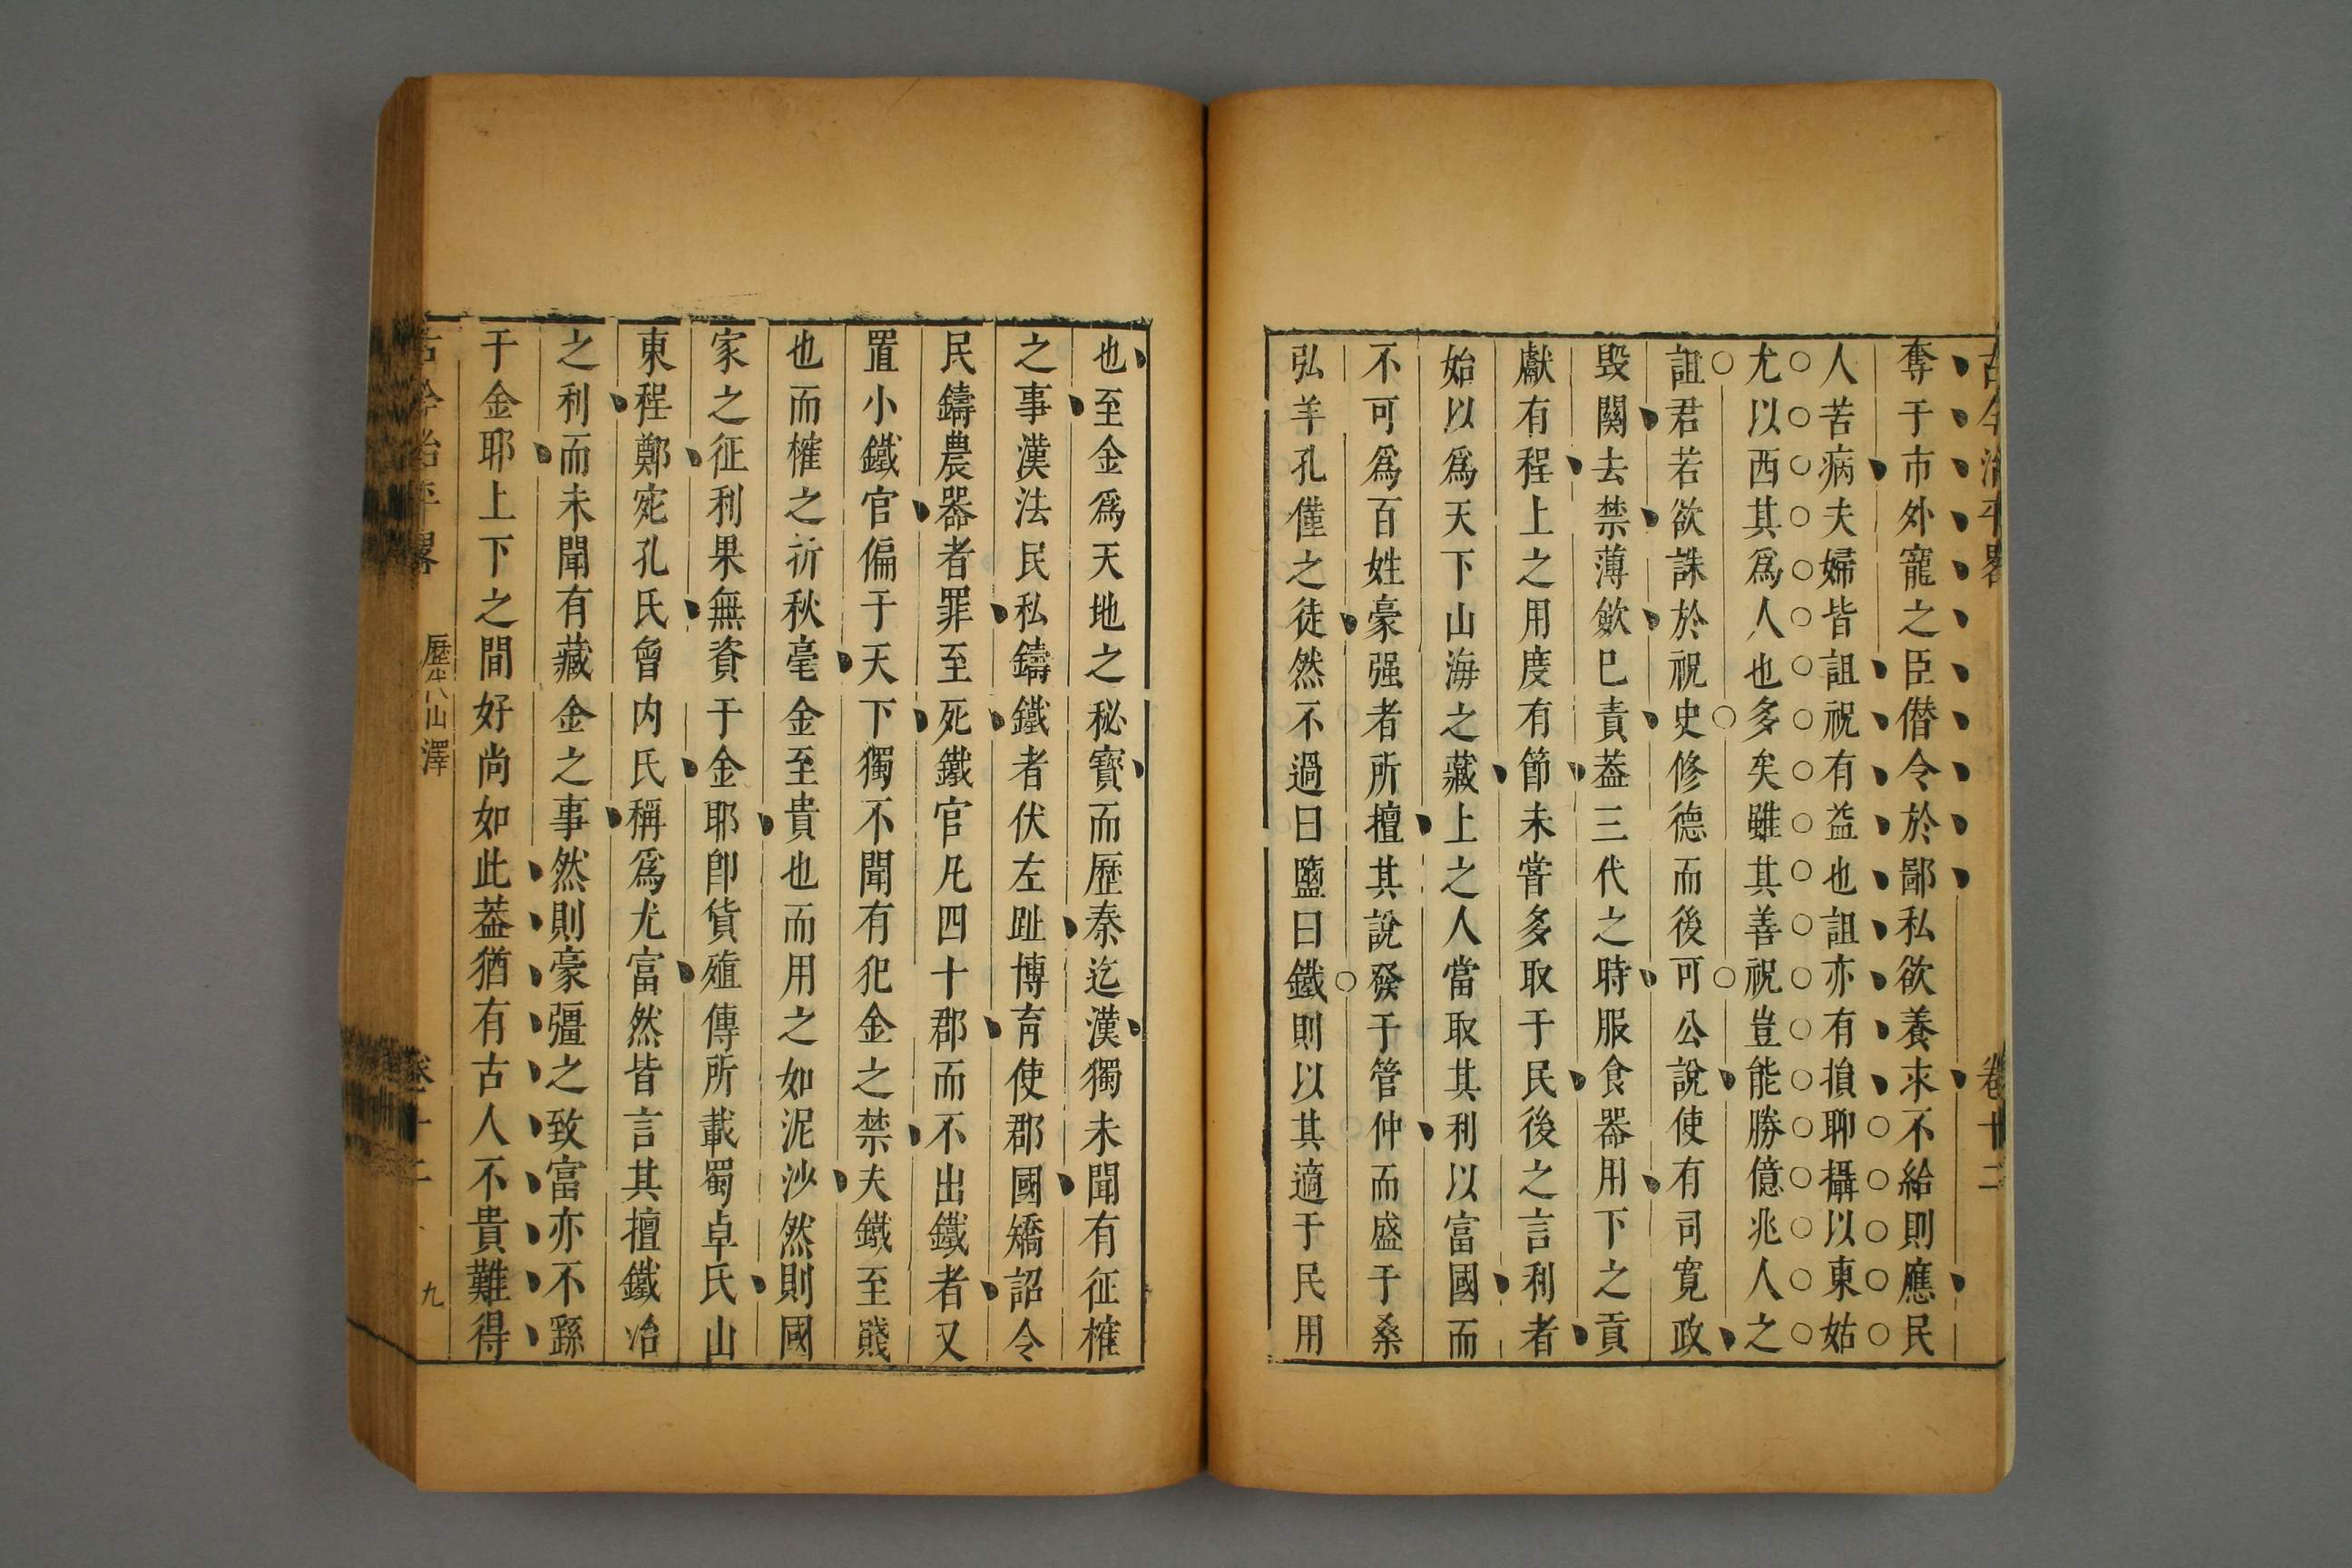 古今治平畧 卷十二
奪于市外寵之臣僣令於鄙私欲養求不給則應民
人苦病夫婦皆詛祝有益也詛亦有損聊攝以東姑
尤以西其爲人也多矣雖其善祝豈能勝億兆人之
詛君若欲誅於祝史修德而後可公說使有司寛政
毀關去禁薄斂巳責葢三代之時服食器用下之貢
獻有程上之用度有節未甞多取于民後之言利者
始以爲天下山海之藏上之人當取其利以富國而
不可爲百姓豪强者所擅其說發于管仲而盛于桑
弘羊孔僅之徒然不過曰鹽曰鐵則以其適于民用
也至金爲天地之秘寶而歷秦迄漢獨未聞有征榷
之事漢法民私鑄鐵者伏左趾博士使郡國矯詔令
民鑄農器者罪至死鐵官凡四十郡而不出鐵者又
置小鐵官偏于天下獨不聞有犯金之禁夫鐵至賤
也而榷之祈秋毫金至貴也而用之如泥沙然則國
家之征利果無資于金耶卽貨殖傳所載蜀卓氏山
東程鄭宛孔氏曾内氏稱爲尤富然皆言其擅鐵冶
之利而未聞有藏金之事然則豪彊之致富亦不繇
于金耶上下之間好尚如此葢猶有古人不貴難得
古今治平畧 歷代山澤 卷十二 九